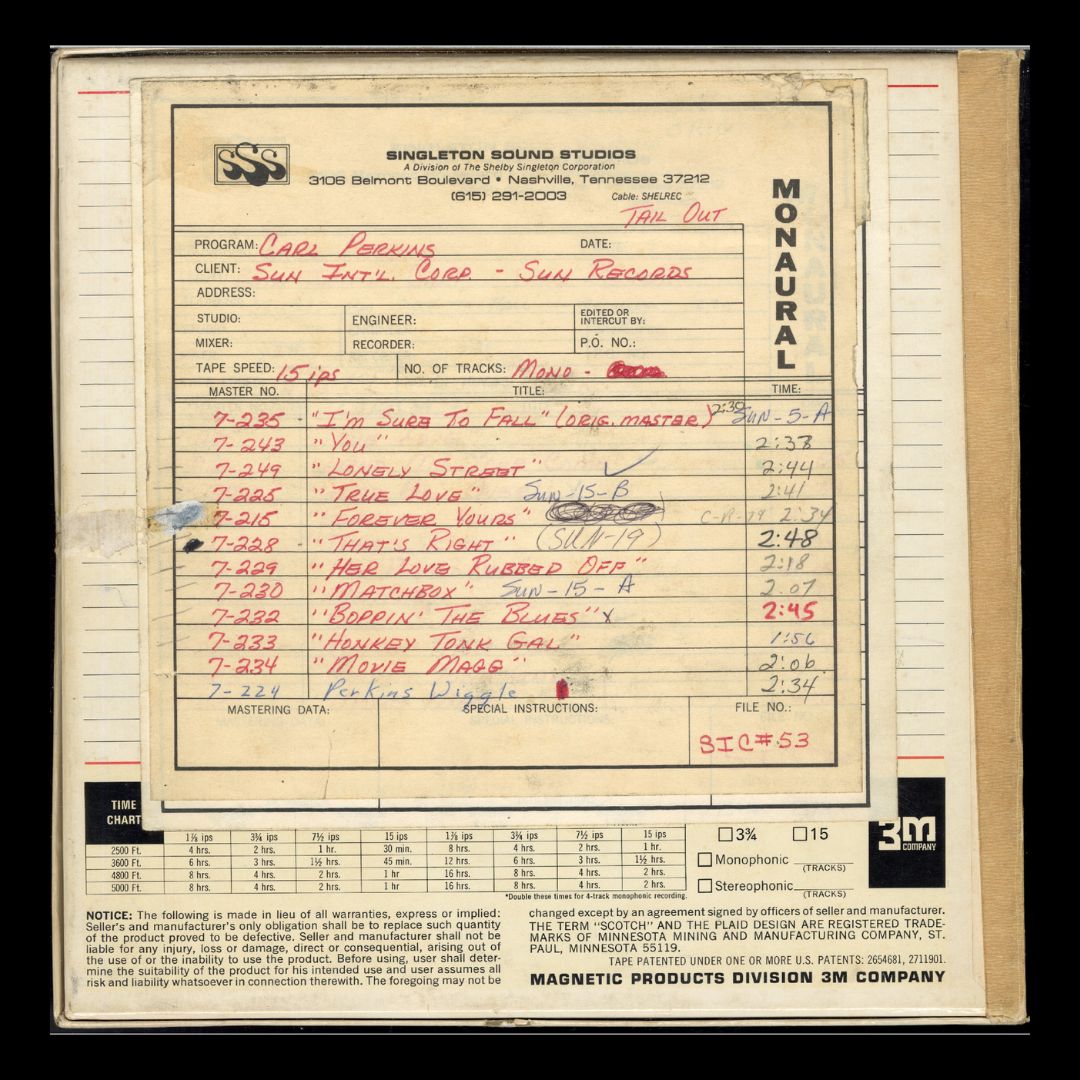 SSS
SINGLETON SOUND STUDIOS
A Division of The Shelby Singleton Corporation
3106 Belmont Boulevard • Nashville, Tennessee 37212
(615) 291-2003 Cable: SHELREC
TAIL OUT
MONAURAL
PROGRAM: CARL PERKINS DATE:
CLIENT: SUN INT'L. CORP. - SUN RECORDS
ADDRESS:
STUDIO: ENGINEER: EDITED OR INTERCUT BY:
MIXER: RECORDER: P.O. NO.:
TAPE SPEED: 15 ips NO. OF TRACKS: MONO -
MASTER NO. TITLE: TIME:
7-235 - "I'M SURE TO FALL" (ORIG. MASTER) 2:30 SUN-5-A
7-243 "YOU" 2:38
7-249 "LONELY STREET" ✓ 2:44
7-225 "TRUE LOVE" SUN-15-B 2:41
7-215 "FOREVER YOURS" 2:34
7-228 - "THAT'S RIGHT" (SUN-19) 2:48
7-229 "HER LOVE RUBBED OFF" 2:18
7-230 "MATCHBOX" SUN-15-A 2:07
7-232 "BOPPIN' THE BLUES" X 2:45
7-233 "HONKEY TONK GAL" 1:56
7-234 "MOVIE MAGG" 2:06
7-224 Perkins Wiggle 2:34
MASTERING DATA: SPECIAL INSTRUCTIONS: FILE NO.:
SIC#53
TIME CHART
1⅞ ips 3¾ ips 7½ ips 15 ips 1⅞ ips 3¾ ips 7½ ips 15 ips
2500 Ft. 4 hrs. 2 hrs. 1 hr. 30 min. 8 hrs. 4 hrs. 2 hrs. 1 hr.
3600 Ft. 6 hrs. 3 hrs. 1½ hrs. 45 min. 12 hrs. 6 hrs. 3 hrs. 1½ hrs.
4800 Ft. 8 hrs. 4 hrs. 2 hrs. 1 hr 16 hrs. 8 hrs. 4 hrs. 2 hrs.
5000 Ft. 8 hrs. 4 hrs. 2 hrs. 1 hr 16 hrs. 8 hrs. 4 hrs. 2 hrs.
*Double these times for 4-track monophonic recording.
3¾ 15
Monophonic (TRACKS)
Stereophonic (TRACKS)
3M COMPANY
NOTICE: The following is made in lieu of all warranties, express or implied:
Seller's and manufacturer's only obligation shall be to replace such quantity
of the product proved to be defective. Seller and manufacturer shall not be
liable for any injury, loss or damage, direct or consequential, arising out of
the use of or the inability to use the product. Before using, user shall deter-
mine the suitability of the product for his intended use and user assumes all
risk and liability whatsoever in connection therewith. The foregoing may not be
changed except by an agreement signed by officers of seller and manufacturer.
THE TERM "SCOTCH" AND THE PLAID DESIGN ARE REGISTERED TRADE-
MARKS OF MINNESOTA MINING AND MANUFACTURING COMPANY, ST.
PAUL, MINNESOTA 55119.
TAPE PATENTED UNDER ONE OR MORE U.S. PATENTS: 2654681, 2711901.
MAGNETIC PRODUCTS DIVISION 3M COMPANY